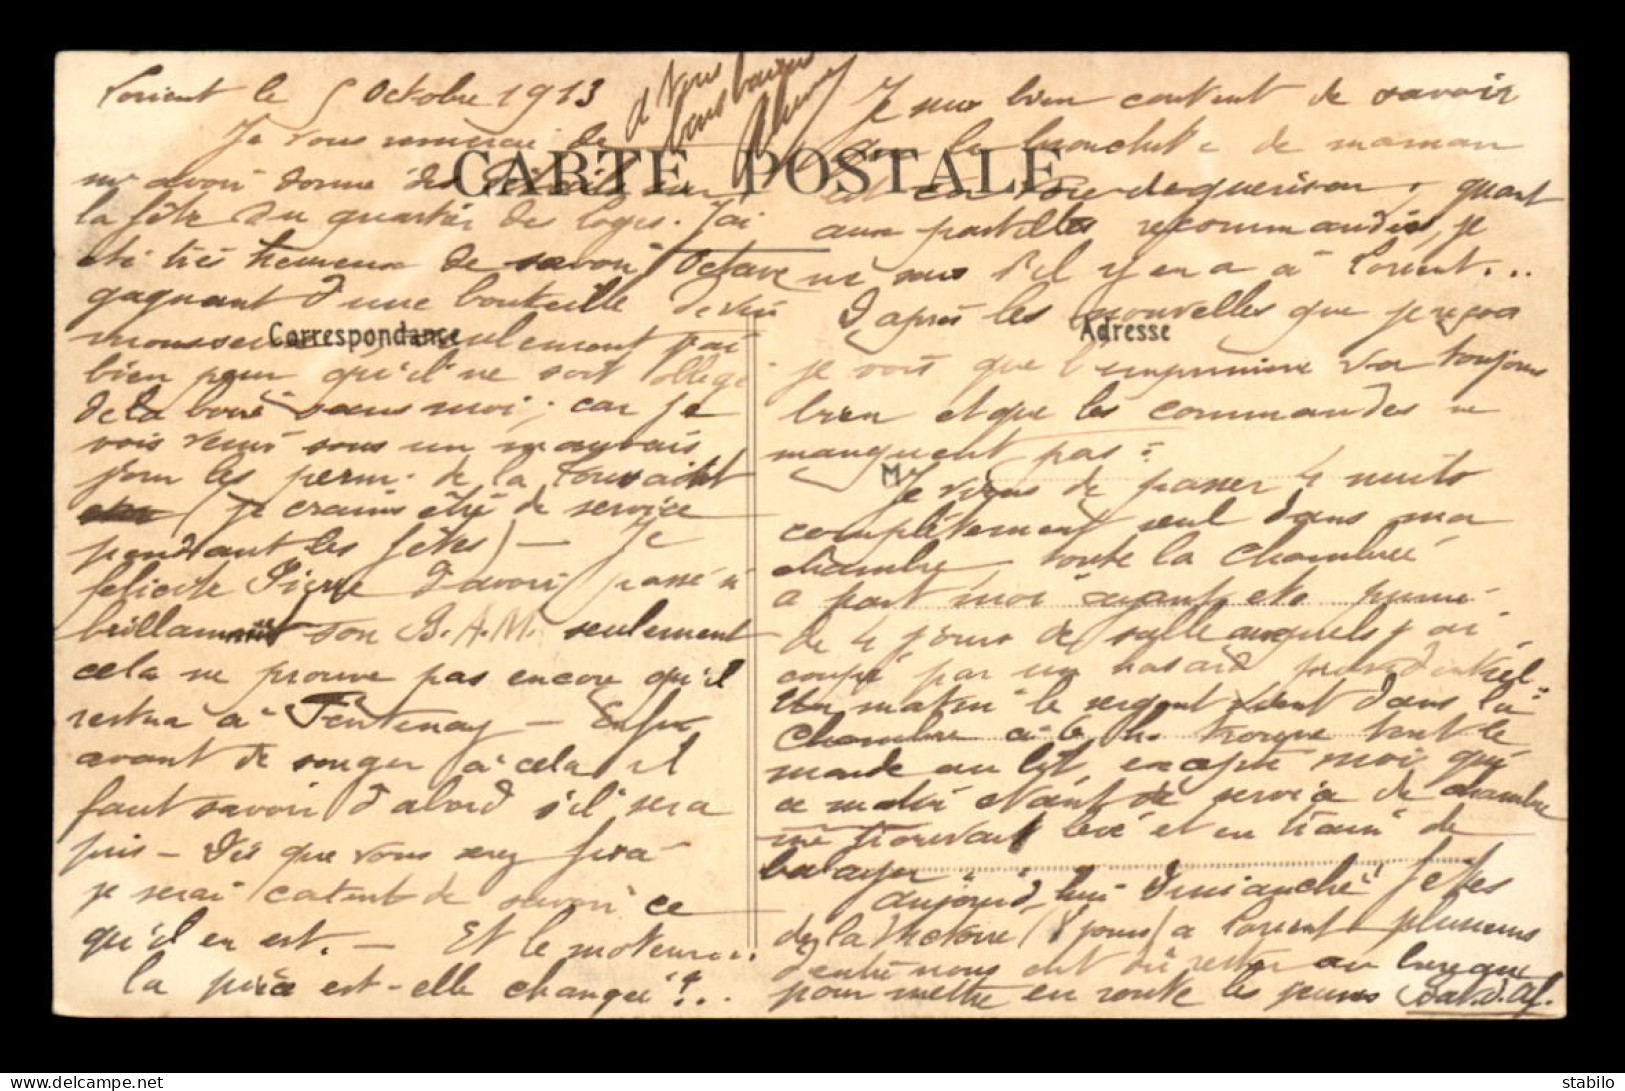 Lorient le 5 Octobre 1913
Je vous remercie de
m'avoir donné des détails sur
la fête du quartier des loges. J'ai
été très heureux de savoir Octave
gagnant d'une bouteille de vin
mousseux seulement j'ai
bien peur qu'il ne soit obligé
de la boire sans moi; car je
vois venir sous un mauvais
jour les perm. de la Toussaint
(je crains être de service
pendant les fêtes) — Je
félicite Pierre d'avoir passé si
brillamment son B.A.M. seulement
cela ne prouve pas encore qu'il
restera à Fontenay — Enfin
avant de songer à cela il
faut savoir d'abord s'il sera
pris — Dès que vous serez fixé
je serai content de savoir ce
qu'il en est. — Et le moteur..
la pièce est-elle changée!...
CARTE POSTALE
Correspondance
Adresse
M
Je suis bien content de savoir
que la bronchite de maman
est en voie de guérison, quant
aux pastilles recommandées, je
ne sais s'il y en a à Lorient...
D'après les nouvelles que je reçois
je vois que l'imprimerie va toujours
bien et que les commandes ne
manquent pas:
Je viens de passer 4 nuits
complètement seul dans ma
chambre, toute la chambrée
à part moi ayant été punie
de 4 jours de salle auxquels j'ai
coupé par un hasard providentiel:
Un matin le sergent vient dans la
chambre à 6 h. trouve tout le
monde au lit, excepté moi, qui
ce matin étant de service de chambre
me trouvait levé et en train de
balayer
aujourd'hui Dimanche Fêtes
de la Victoire (8 jours) à Lorient plusieurs
d'entre nous ont dû rester au bureau
pour mettre en route les jeunes
et vous
bons baisers